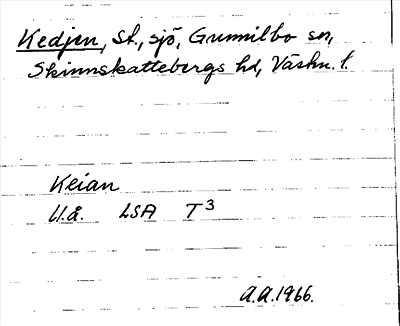 Kedjen, St., sjö, Gunnilbo sn,
Skinnskattebergs hd, Västm. l.
Keian
U.å. LSA T3
A.A.1966.